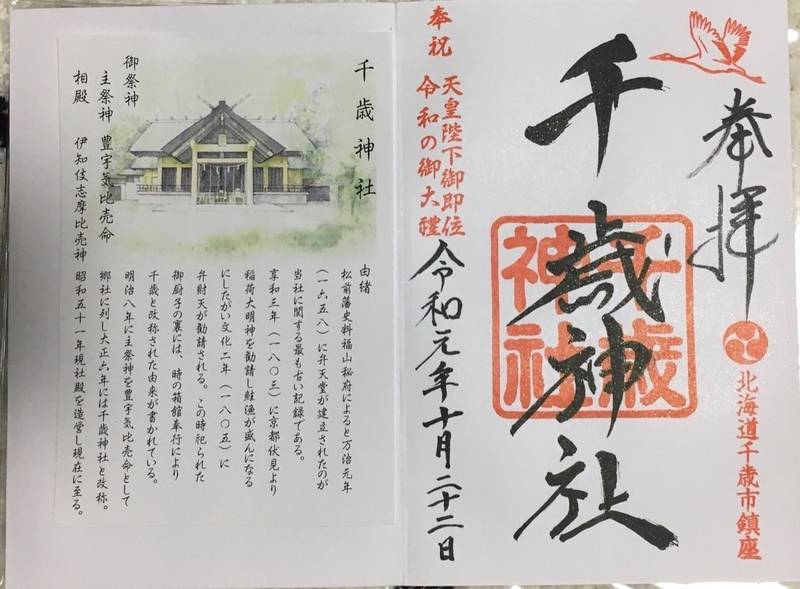 奉拝
北海道千歳市鎮座
千歳神社
千歳神社
奉祝
天皇陛下御即位
令和の御大禮
令和元年十月二十二日
千歳神社
御祭神
主祭神 豊宇気比売命
相殿 伊知伎志摩比売神
由緒
松前藩史料福山秘府によると万治元年
(一六五八)に弁天堂が建立されたのが
当社に関する最も古い記録である。
享和三年(一八〇三)に京都伏見より
稲荷大明神を勧請し鮭漁が盛んになる
にしたがい文化二年(一八〇五)に
弁財天が勧請される。この時祀られた
御厨子の裏には、時の箱館奉行により
千歳と改称された由来が書かれている。
明治八年に主祭神を豊宇気比売命として
郷社に列し大正六年には千歳神社と改称。
昭和五十一年現社殿を造営し現在に至る。